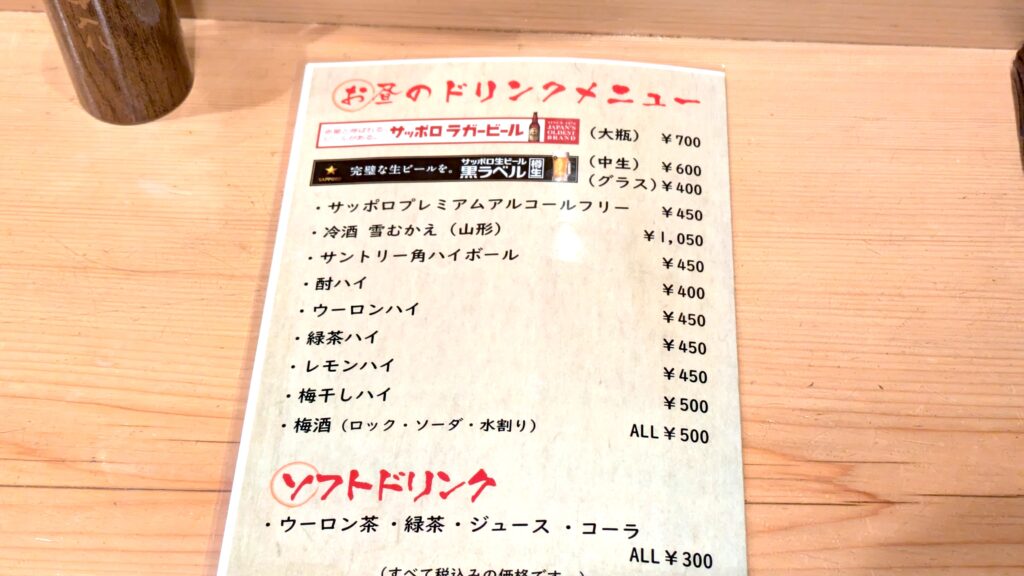 お昼のドリンクメニュー
サッポロ ラガービール SINCE 1876 JAPAN'S OLDEST BRAND (大瓶) ¥700
SAPPORO 完璧な生ビールを。 サッポロ生ビール 黒ラベル 樽生 (中生) ¥600
(グラス) ¥400
・サッポロプレミアムアルコールフリー ¥450
・冷酒 雪むかえ (山形) ¥1,050
・サントリー角ハイボール ¥450
・酎ハイ ¥400
・ウーロンハイ ¥450
・緑茶ハイ ¥450
・レモンハイ ¥450
・梅干しハイ ¥500
・梅酒 (ロック・ソーダ・水割り) ALL ¥500
ソフトドリンク
・ウーロン茶 ・緑茶 ・ジュース ・コーラ
ALL ¥300
(すべて税込みの価格です。)